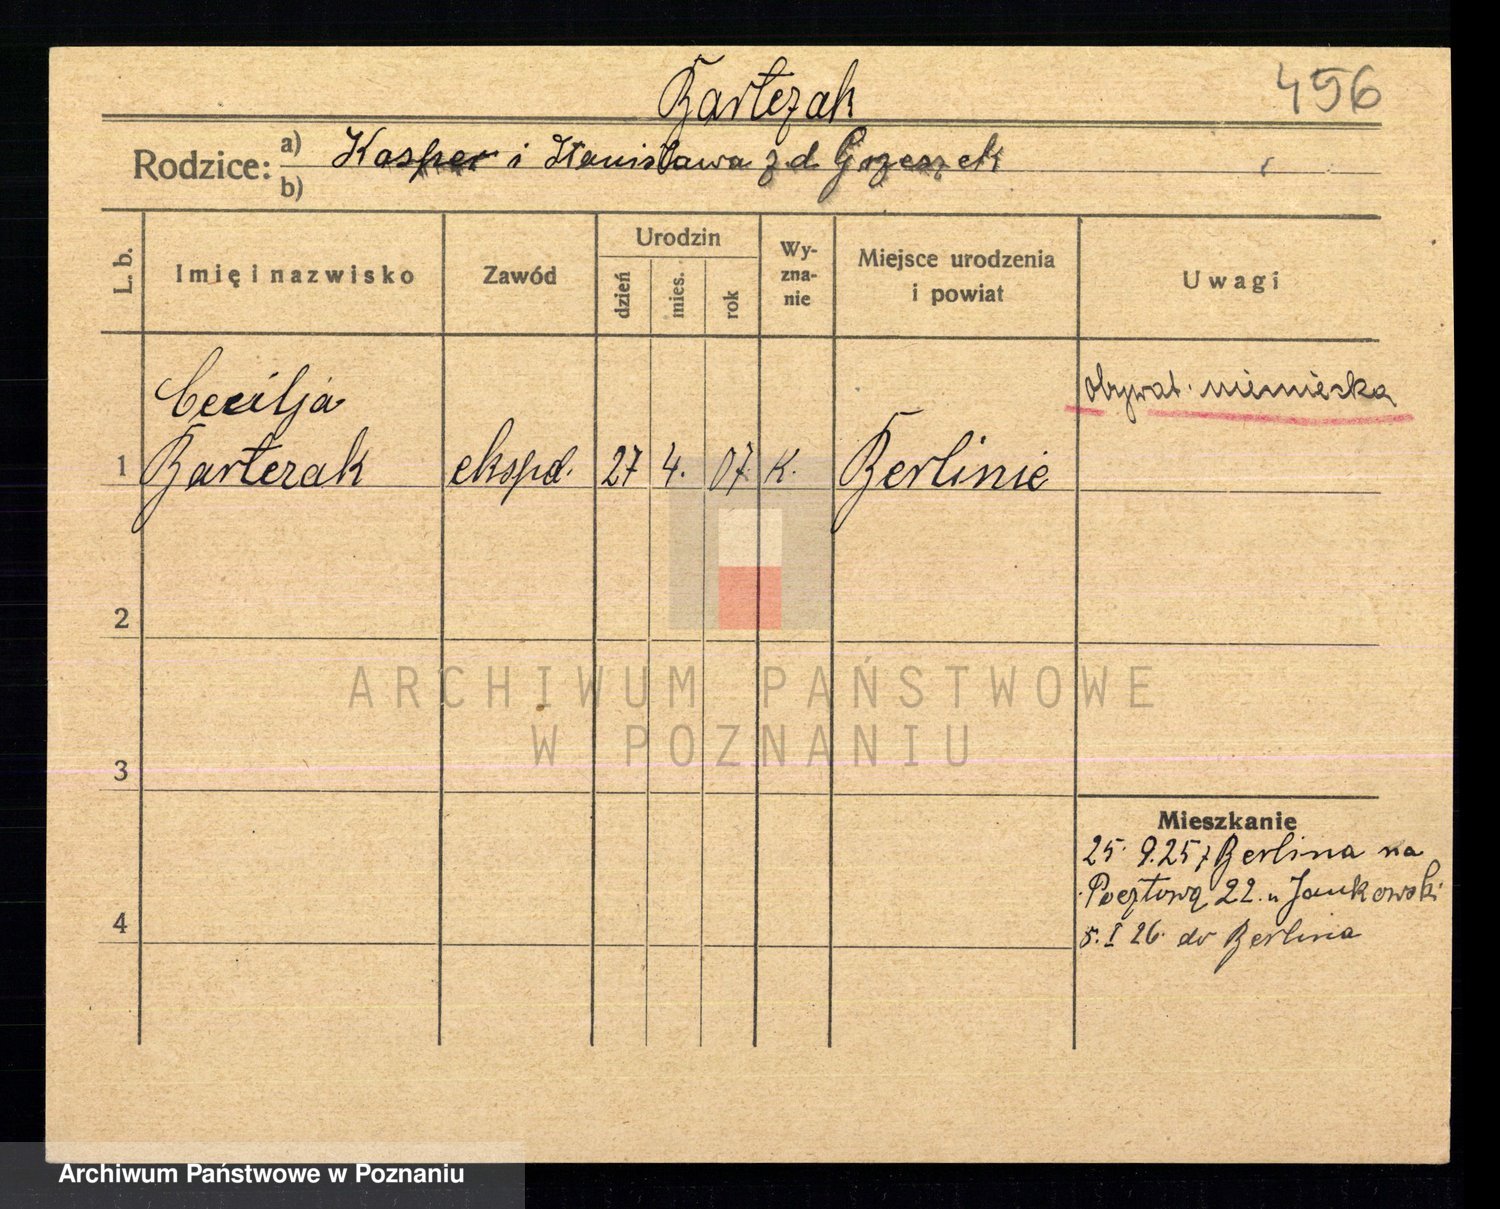 Bartczak
456
Rodzice:
a) Kasper i Stanisława z d Grzeszek
b)
L. b.
Imię i nazwisko
Zawód
Urodzin
dzień
mies.
rok
Wy-
zna-
nie
Miejsce urodzenia
i powiat
Uwagi
Cecilja
1 Bartczak ekspd. 27 4. 07. K. Berlinie
obywat. niemiecka
2
3
4
Mieszkanie
25. 9. 25 z Berlina na
Pocztową 22. u Jankowski
5. I 26. do Berlina
ARCHIWUM PAŃSTWOWE
W POZNANIU
Archiwum Państwowe w Poznaniu